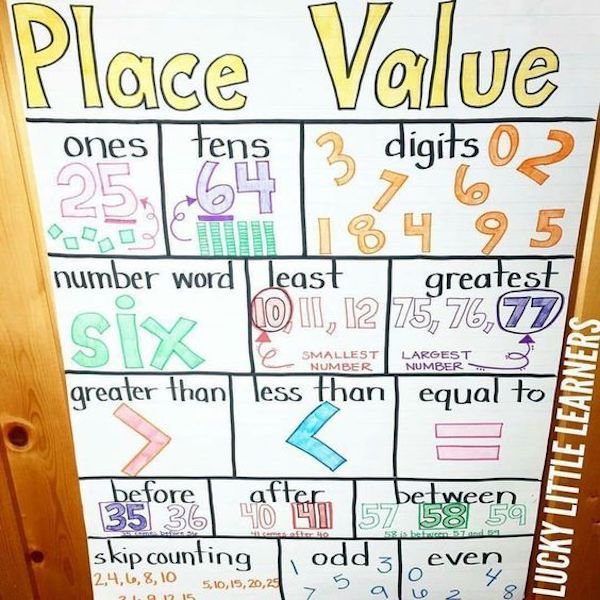 Place Value
ones
25
tens
64
digits
3 0 2
7 6
1 8 4 9 5
number word
six
least
10, 11, 12
SMALLEST
NUMBER
greatest
75, 76, 77
LARGEST
NUMBER
greater than
>
less than
<
equal to
=
before
35 36
35 comes before 36
after
40 41
41 comes after 40
between
57 58 59
58 is between 57 and 59
skip counting
2,4,6,8,10
5,10,15,20,25
3 6 9 12 15
odd
1 3
7 5 9
even
0 4
6 2 8
LUCKY LITTLE LEARNERS